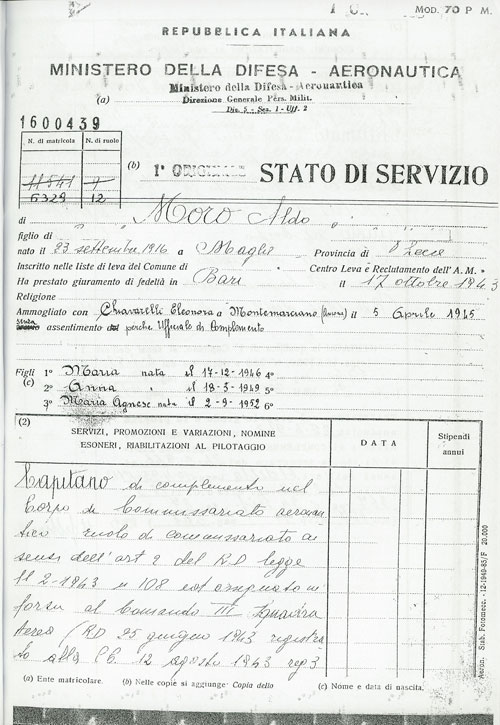 MOD. 70 P M.
REPUBBLICA ITALIANA
MINISTERO DELLA DIFESA - AERONAUTICA
Ministero della Difesa - Aeronautica
(a) Direzione Generale Pers. Milit.
Div. 5 - Sez. 1 - Uff. 2
1600439
N. di matricola N. di ruolo
6329 12
(b) 1° ORIGINALE STATO DI SERVIZIO
di Moro Aldo
figlio di
nato il 23 settembre 1916 a Maglie Provincia di Lecce
Inscritto nelle liste di leva del Comune di Centro Leva e Reclutamento dell'A. M.
Ha prestato giuramento di fedeltà in Bari il 17 ottobre 1943
Religione
Ammogliato con Chiavarelli Eleonora a Montemarciano (Ancona) il 5 Aprile 1945
senza assentimento perchè Ufficiale di Complemento
Figli 1° Maria nata il 17-12-1946 4°
(c) 2° Anna " il 18-3-1949 5°
3° Maria Agnese nata il 2-9-1952 6°
(2) SERVIZI, PROMOZIONI E VARIAZIONI, NOMINE
ESONERI, RIABILITAZIONI AL PILOTAGGIO
DATA
Stipendi
annui
Capitano di complemento nel
Corpo di Commissariato aeronau
tico ruolo di commissariato ai
sensi dell'art 2 del RD legge
11-2-1943 n 108 ed assegnato in
forza al Comando III Squadra
Aerea (RD 25 giugno 1943 registra
to alla CC. 12 agosto 1943 reg 3
(a) Ente matricolare. (b) Nelle copie si aggiunge: Copia dello (c) Nome e data di nascita.
Aeron. Stab. Fotomecc. - 12-1949-85/F 20.000